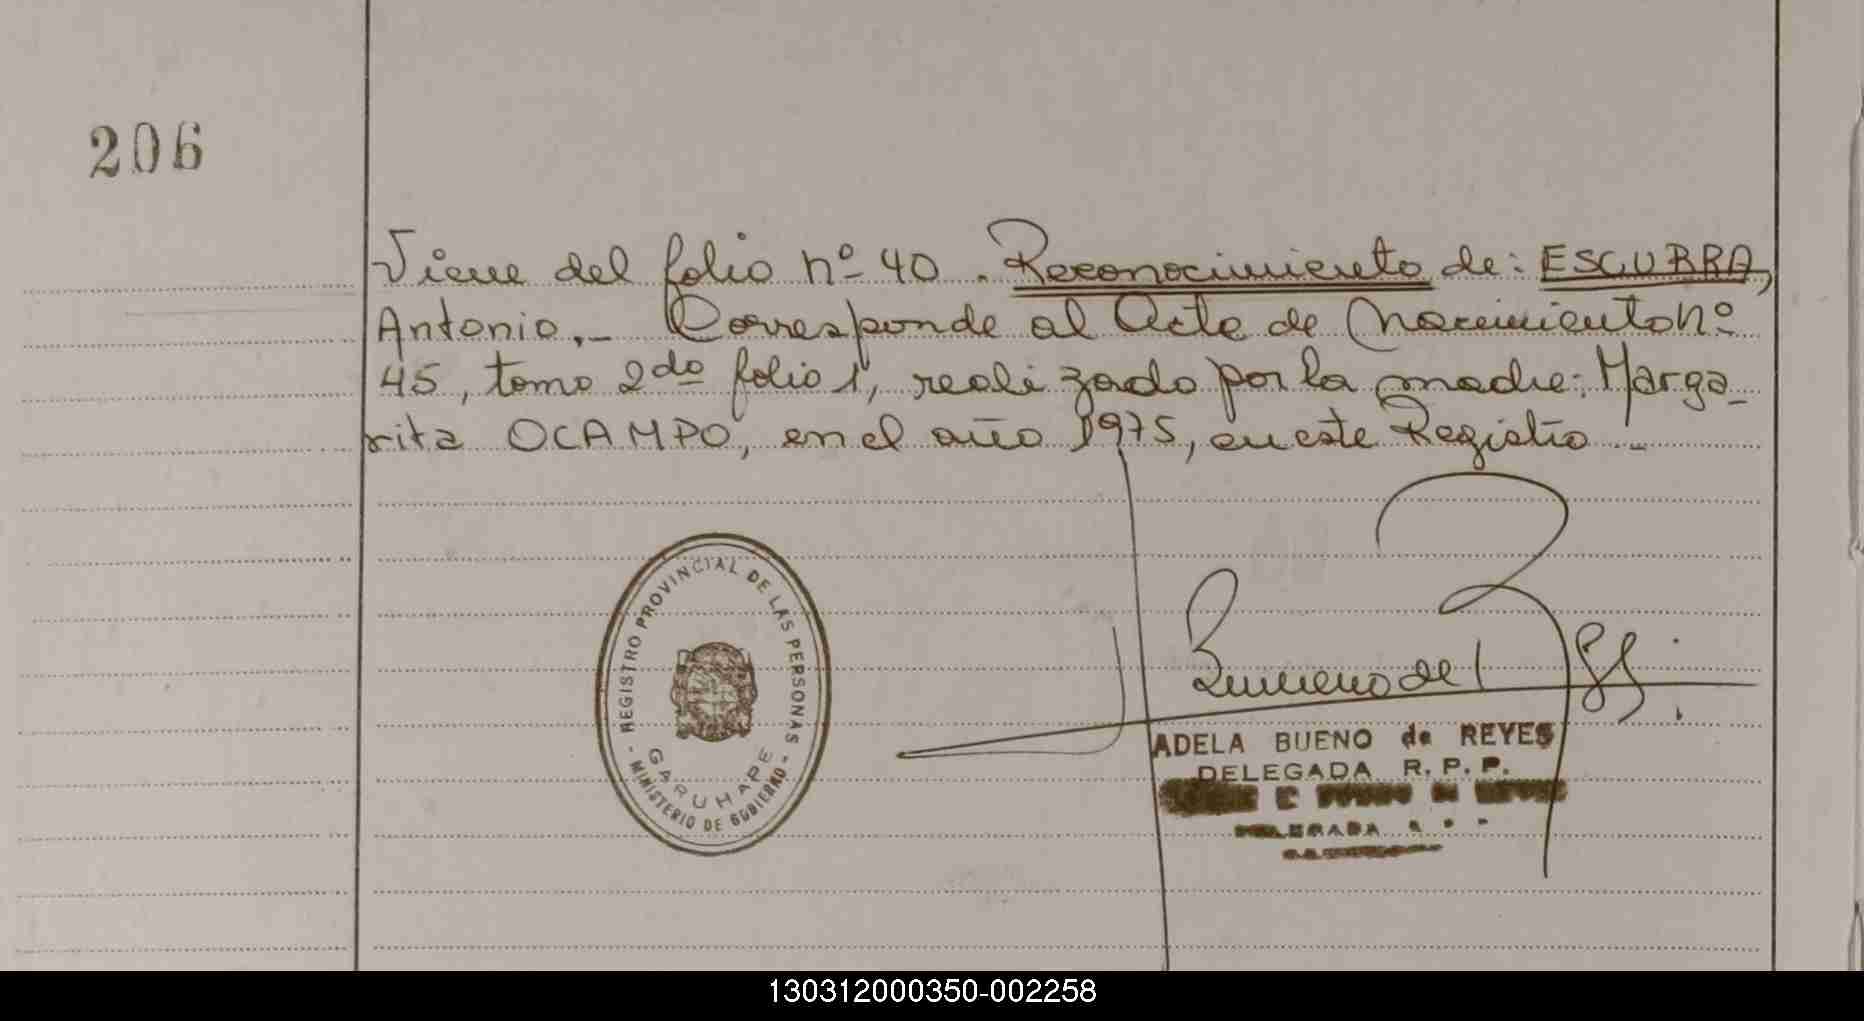 206
Viene del folio nº 40. Reconocimiento de: ESCURRA,
Antonio._ Corresponde al Acta de Nacimiento nº
45, tomo 2do folio 1, realizado por la madre: Marga_
rita OCAMPO, en el año 1975, en este Registro._
- REGISTRO PROVINCIAL DE LAS PERSONAS -
GARUHAPE
MINISTERIO DE GOBIERNO
Bueno de
ADELA BUENO de REYES
DELEGADA R. P. P.
DELEGADA
130312000350-002258